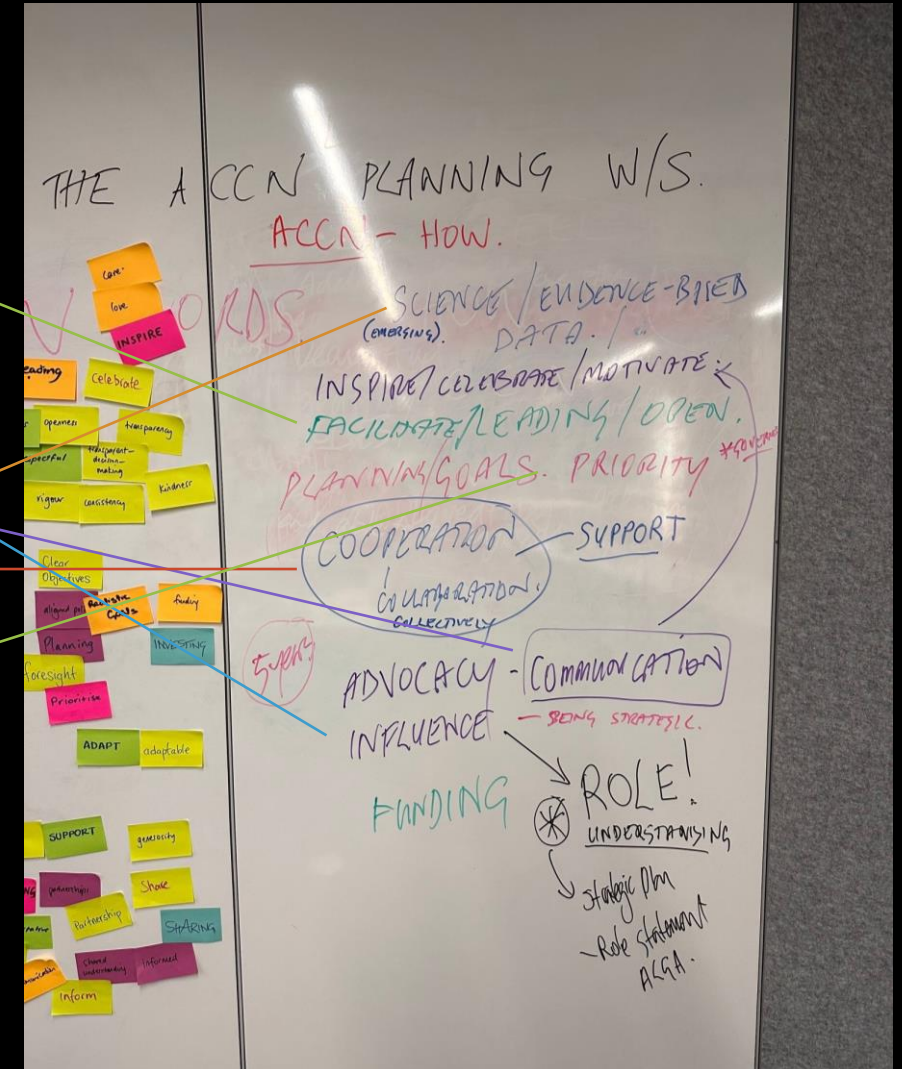 THE ACCN PLANNING W/S.
ACCN - HOW.
SCIENCE / EVIDENCE-BASED
(EMERGING). DATA. /
INSPIRE / CELEBRATE / MOTIVATE.
FACILITATE / LEADING / OPEN.
PLANNING/GOALS. PRIORITY
COOPERATION - SUPPORT
COLLABORATION.
COLLECTIVELY
ADVOCACY - COMMUNICATION
INFLUENCE - BEING STRATEGIC.
FUNDING
ROLE!
UNDERSTANDING
Strategic Plan
- Role Statement
ALGA.
Care.
love
INSPIRE
Celebrate
openness
transparency
transparent-
decision-
making
rigour
consistency
kindness
Clear
Objectives
Realistic
Goals
funding
Planning
INVESTING
foresight
Prioritise
ADAPT
adaptable
SUPPORT
generosity
Share
Partnership
SHARING
Shared
understanding
informed
inform